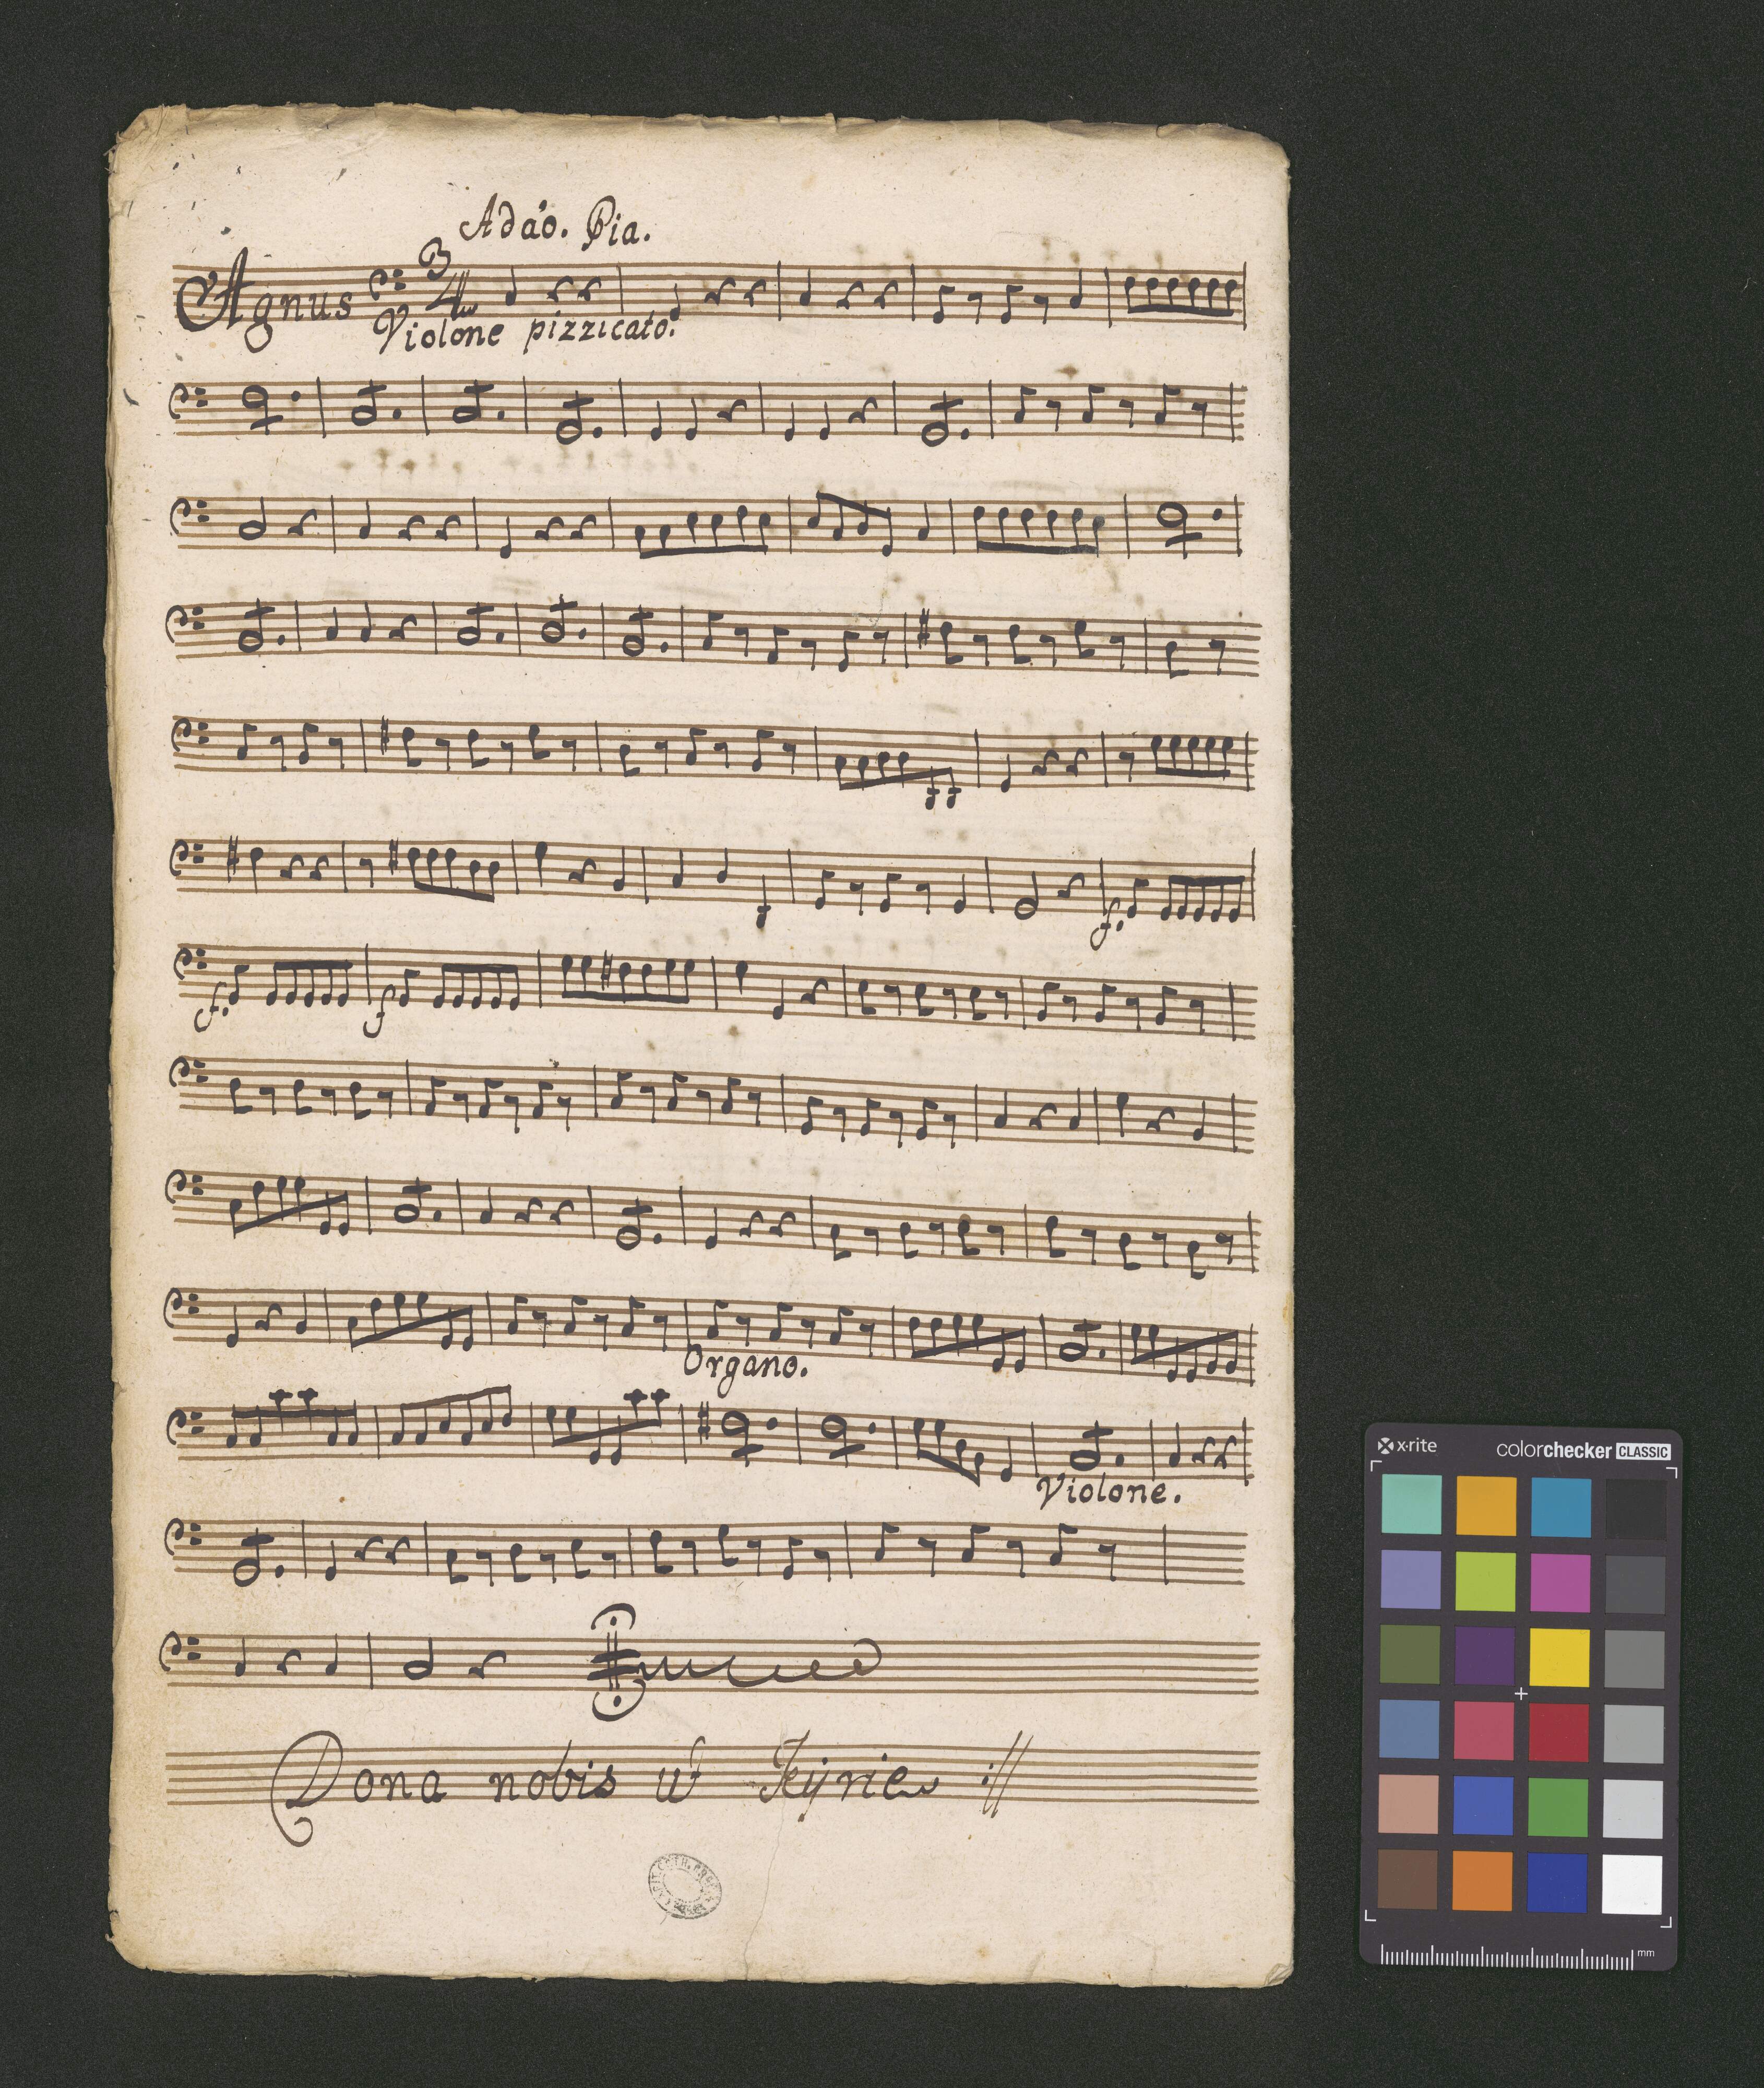 Adaō. Pia.
Agnus 3/4
Violone pizzicato.
f.
f. f
Organo.
Violone.
Dona nobis ut Kyrie
x·rite colorchecker CLASSIC
mm